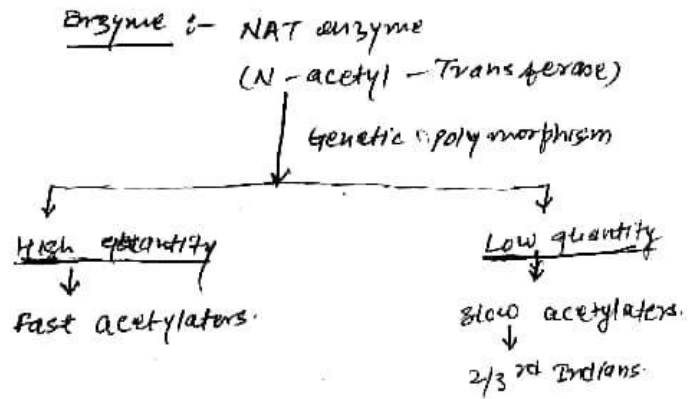 Enzyme :- NAT enzyme
(N-acetyl-Transferase)
Genetic polymorphism
High quantity
Low quantity
Fast acetylaters.
Slow acetylaters.
2/3rd Indians.